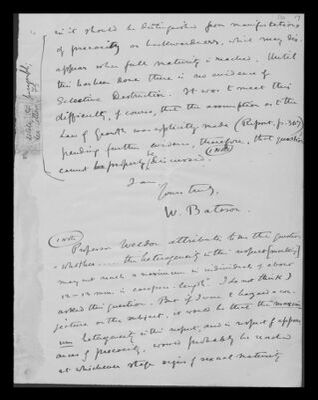 in it should be distinguished from manifestations
of precocity or backwardness, which may dis-
appear when full maturity is reached. Until
this has been done there is no evidence of
Selective Destruction. It was to meet this
difficulty, of course, that the assumption as to the
Law of Growth was explicitly made (Report, p. 30).
pending further evidence, therefore, that question
cannot be properly discussed. (Note)
I am
Yours truly,
W. Bateson.
(Note)
Professor Weldon attributes to me the question
"whether ... the heterogeneity in this respect [
may not reach a maximum in individuals of about
12–13 mm. in carapace-length". I do not think I
asked this question. But if I were to hazard a con-
jecture on the subject, it would be that the maxim-
um heterogeneity in this respect, and in respect of appear-
ances of precocity, would probably be reached
at whichever stage signs of sexual maturity